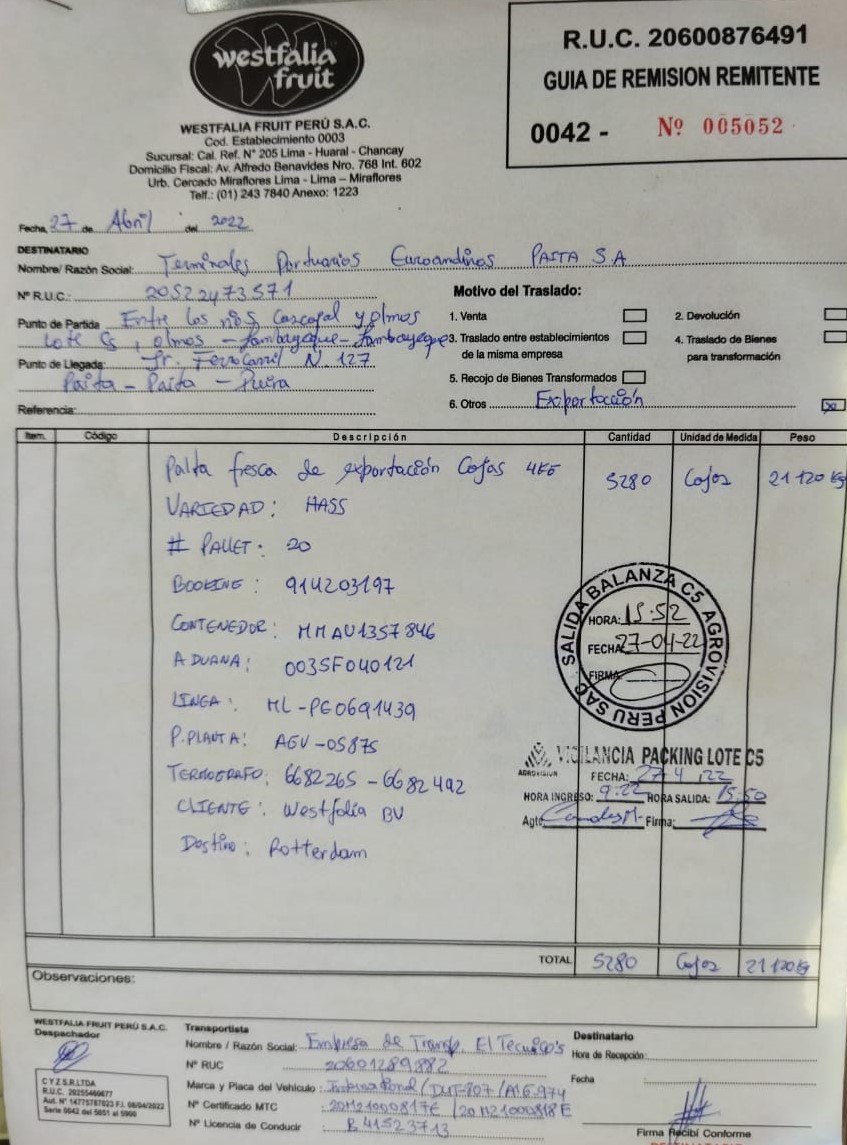 westfalia
fruit
WESTFALIA FRUIT PERÚ S.A.C.
Cod. Establecimiento 0003
Sucursal: Cal. Ref. N° 205 Lima - Huaral - Chancay
Domicilio Fiscal: Av. Alfredo Benavides Nro. 768 Int. 602
Urb. Cercado Miraflores Lima - Lima – Miraflores
Telf.: (01) 243 7840 Anexo: 1223
R.U.C. 20600876491
GUIA DE REMISION REMITENTE
0042 - Nº 005052
Fecha, 27 de Abril del 2022
DESTINATARIO
Nombre/ Razón Social: Terminales Portuarios Euroandinos PAITA S.A
N° R.U.C.: 20522473571
Punto de Partida Entre los ríos Cascajal y olmos
Lote C5, olmos - Lambayeque - Lambayeque
Punto de Llegada: Jr. Ferrocarril N. 127
Paita - Paita - Piura
Referencia:
Motivo del Traslado:
1. Venta
2. Devolución
3. Traslado entre establecimientos
de la misma empresa
4. Traslado de Bienes
para transformación
5. Recojo de Bienes Transformados
6. Otros Exportación
Item. Código Descripción Cantidad Unidad de Medida Peso
Palta fresca de exportación Cajas 4KG 5280 Cajas 21 120 Kg
VARIEDAD: HASS
# PALLET: 20
BOOKING: 914203197
CONTENEDOR: MMAU1357846
ADUANA: 0035F040121
LINEA: ML-PE0691439
P.PLANTA: AGV-05875
TERMOGRAFO: 6682265 - 6682492
CLIENTE: Westfalia BV
Destino: Rotterdam
SALIDA BALANZA C5 AGROVISION PERU SAC
HORA: 15:52
FECHA: 27-04-22
FIRMA
AGROVISION
VIGILANCIA PACKING LOTE C5
FECHA: 27 4 22
HORA INGRESO: 9:22 HORA SALIDA: 15:50
Agte. Firma:
TOTAL 5280 Cajas 21 120 Kg
Observaciones:
WESTFALIA FRUIT PERÚ S.A.C.
Despachador
C Y Z S.R.LTDA
R.U.C. 20255460677
Aut. N° 14775787023 F.I. 08/04/2022
Serie 0042 del 5051 al 5900
Transportista
Nombre / Razón Social: Empresa de Transp. El Tecnico's
N° RUC 20601289882
Marca y Placa del Vehículo: International / /
N° Certificado MTC 20M21000817E / 20M21000818E
N° Licencia de Conducir B41523713
Destinatario
Hora de Recepción:
Fecha
Firma Recibí Conforme